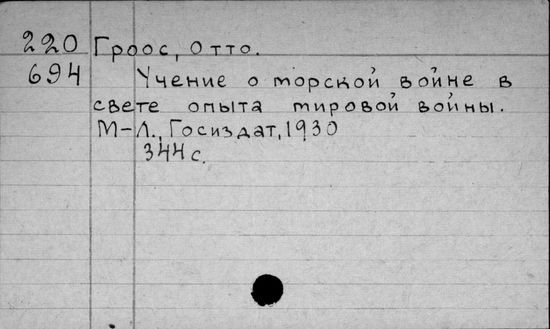 220 Гроос, Отто.
694 Учение о морской войне в
свете опыта мировой войны.
М-Л., Госиздат, 1930
344 с.